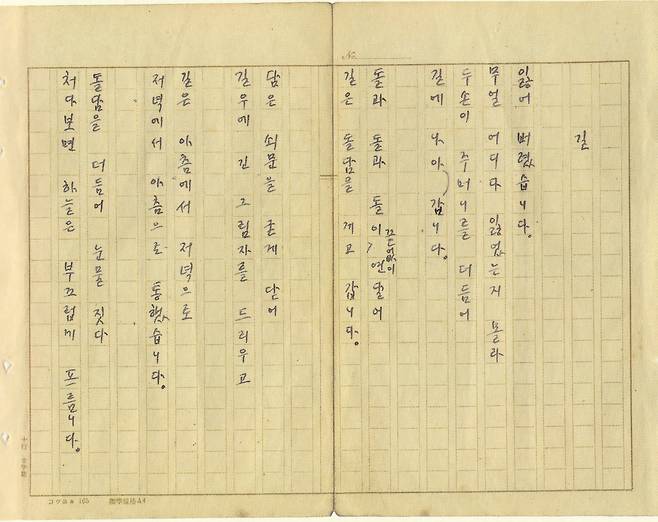 №
길
잃어 버렸습니다.
무얼 어디다 잃었는지 몰라
두손이 주머니를 더듬어
길에 나아갑니다.
돌과 돌과 돌이 끝없이 연달어
길은 돌담을 끼고 갑니다.
담은 쇠문을 굳게 닫어
길우에 긴 그림자를 드리우고
길은 아츰에서 저녁으로
저녁에서 아츰으로 통했습니다.
돌담을 더듬어 눈물 짓다
처다보면 하늘은 부끄럽게 프릅니다.
165
規格A4